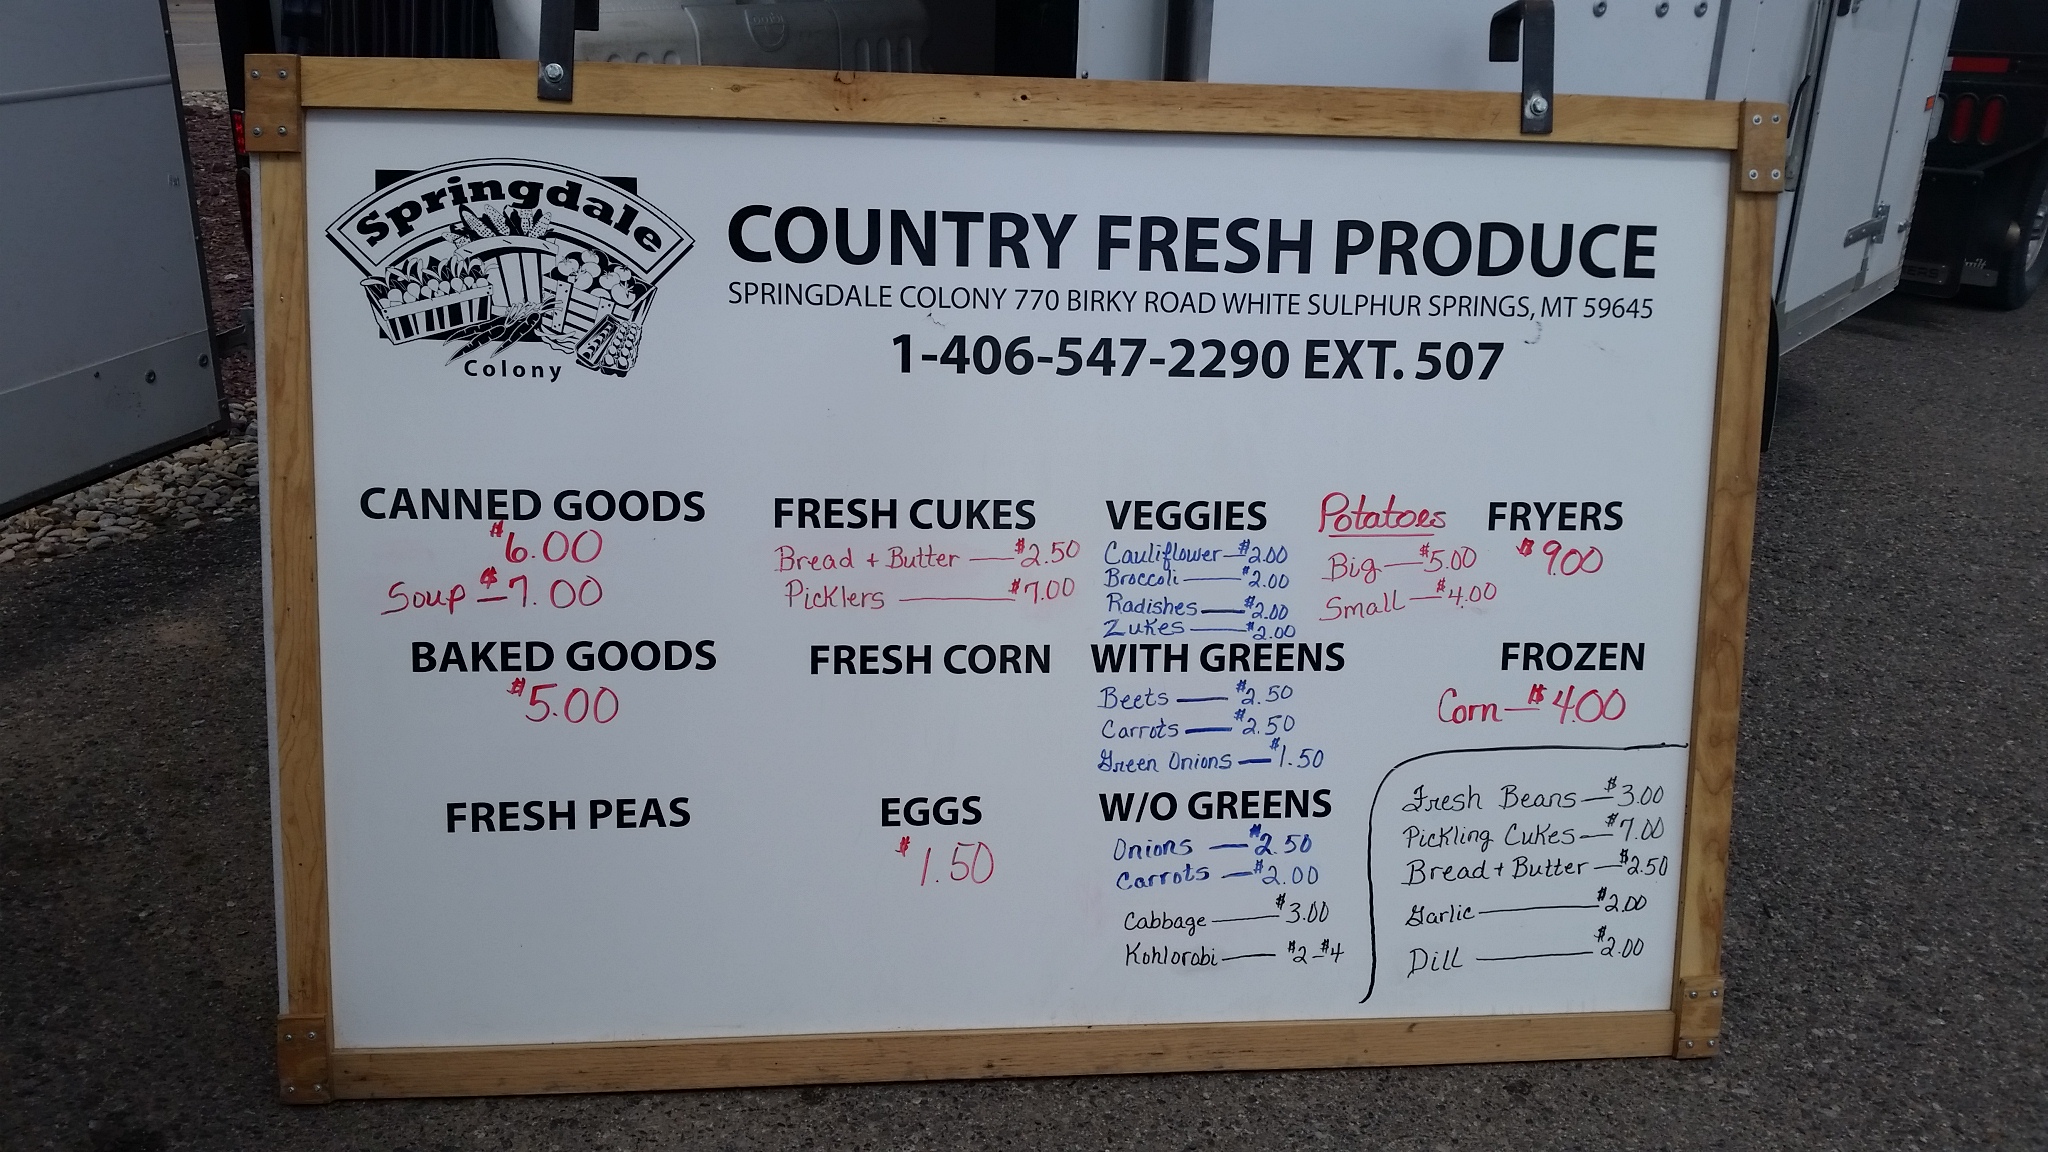 Springdale
Colony
COUNTRY FRESH PRODUCE
SPRINGDALE COLONY 770 BIRKY ROAD WHITE SULPHUR SPRINGS, MT 59645
1-406-547-2290 EXT. 507
CANNED GOODS
$6.00
Soup $7.00
BAKED GOODS
$5.00
FRESH PEAS
FRESH CUKES
Bread + Butter — $2.50
Picklers — $7.00
FRESH CORN
EGGS
$1.50
VEGGIES
Cauliflower — $2.00
Broccoli — $2.00
Radishes — $2.00
Zukes — $2.00
WITH GREENS
Beets — $2.50
Carrots — $2.50
Green Onions — $1.50
W/O GREENS
Onions — $2.50
Carrots — $2.00
Cabbage — $3.00
Kohlorabi — $2-$4
Potatoes
Big — $5.00
Small — $4.00
FRYERS
$9.00
FROZEN
Corn — $4.00
Fresh Beans — $3.00
Pickling Cukes — $7.00
Bread + Butter — $2.50
Garlic — $2.00
Dill — $2.00